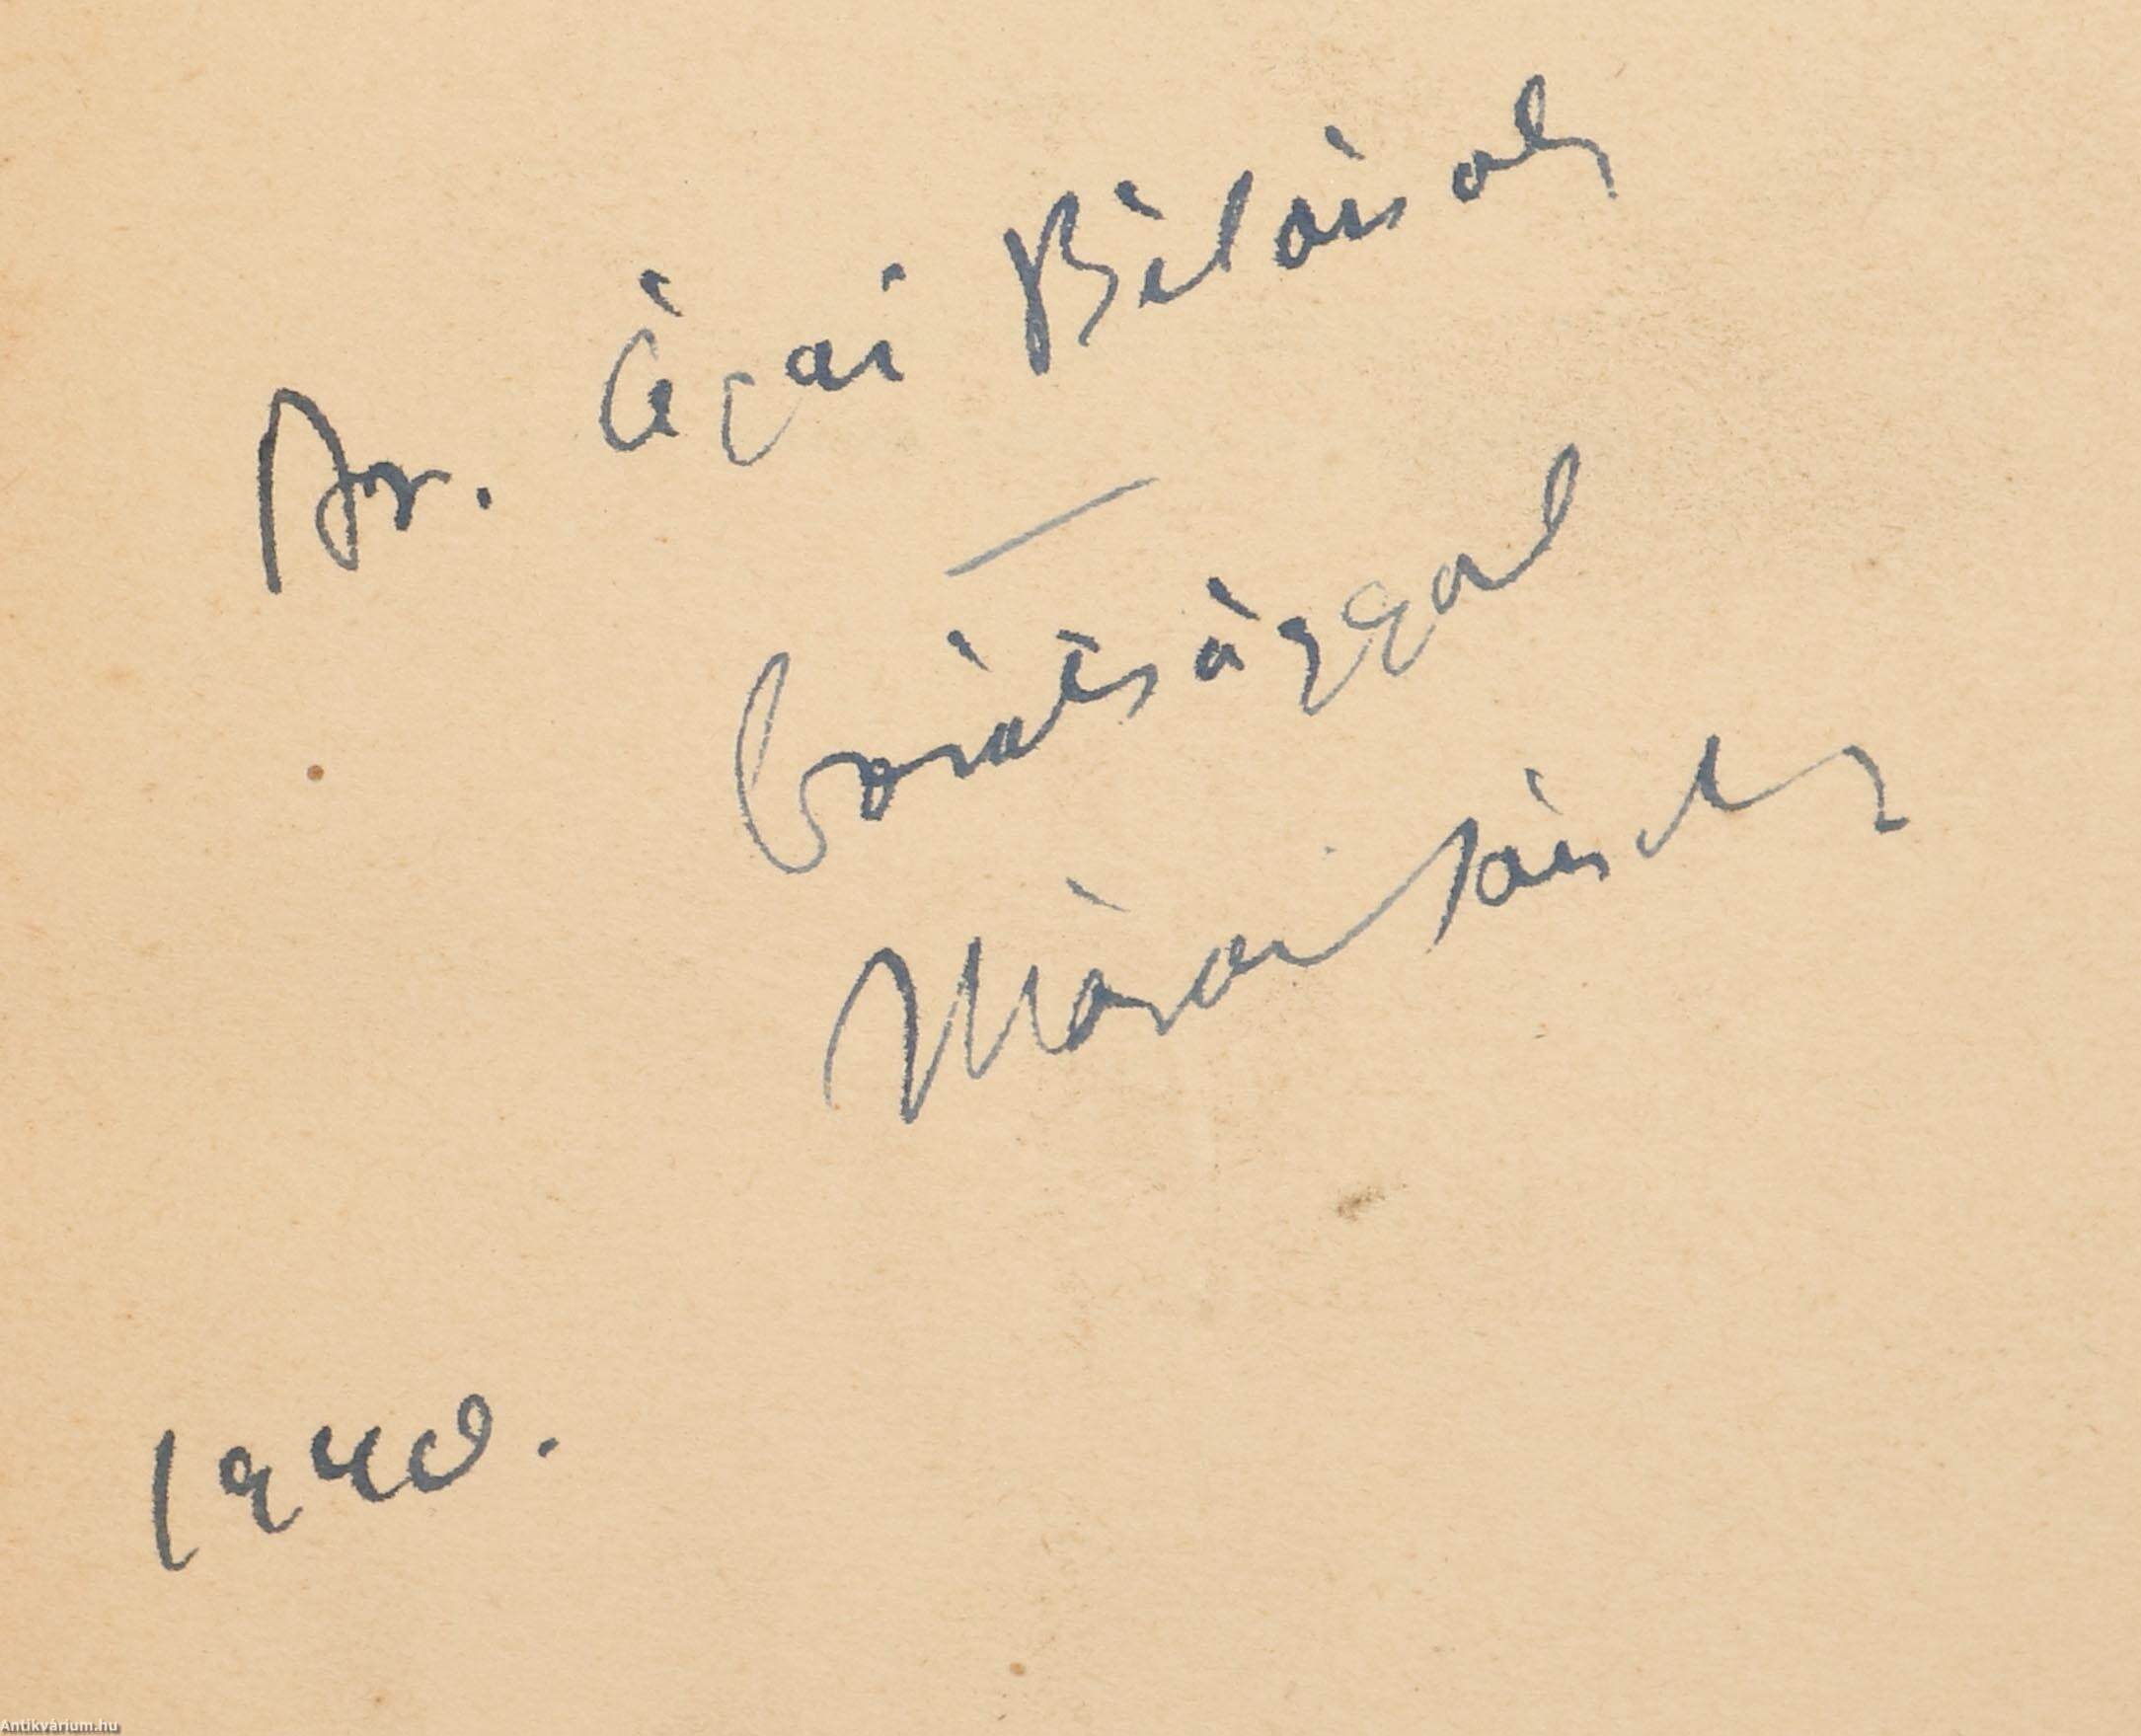 Dr. Ágai Bélának
—
barátsággal
Márai Sándor
1940.
Antikvárium.hu